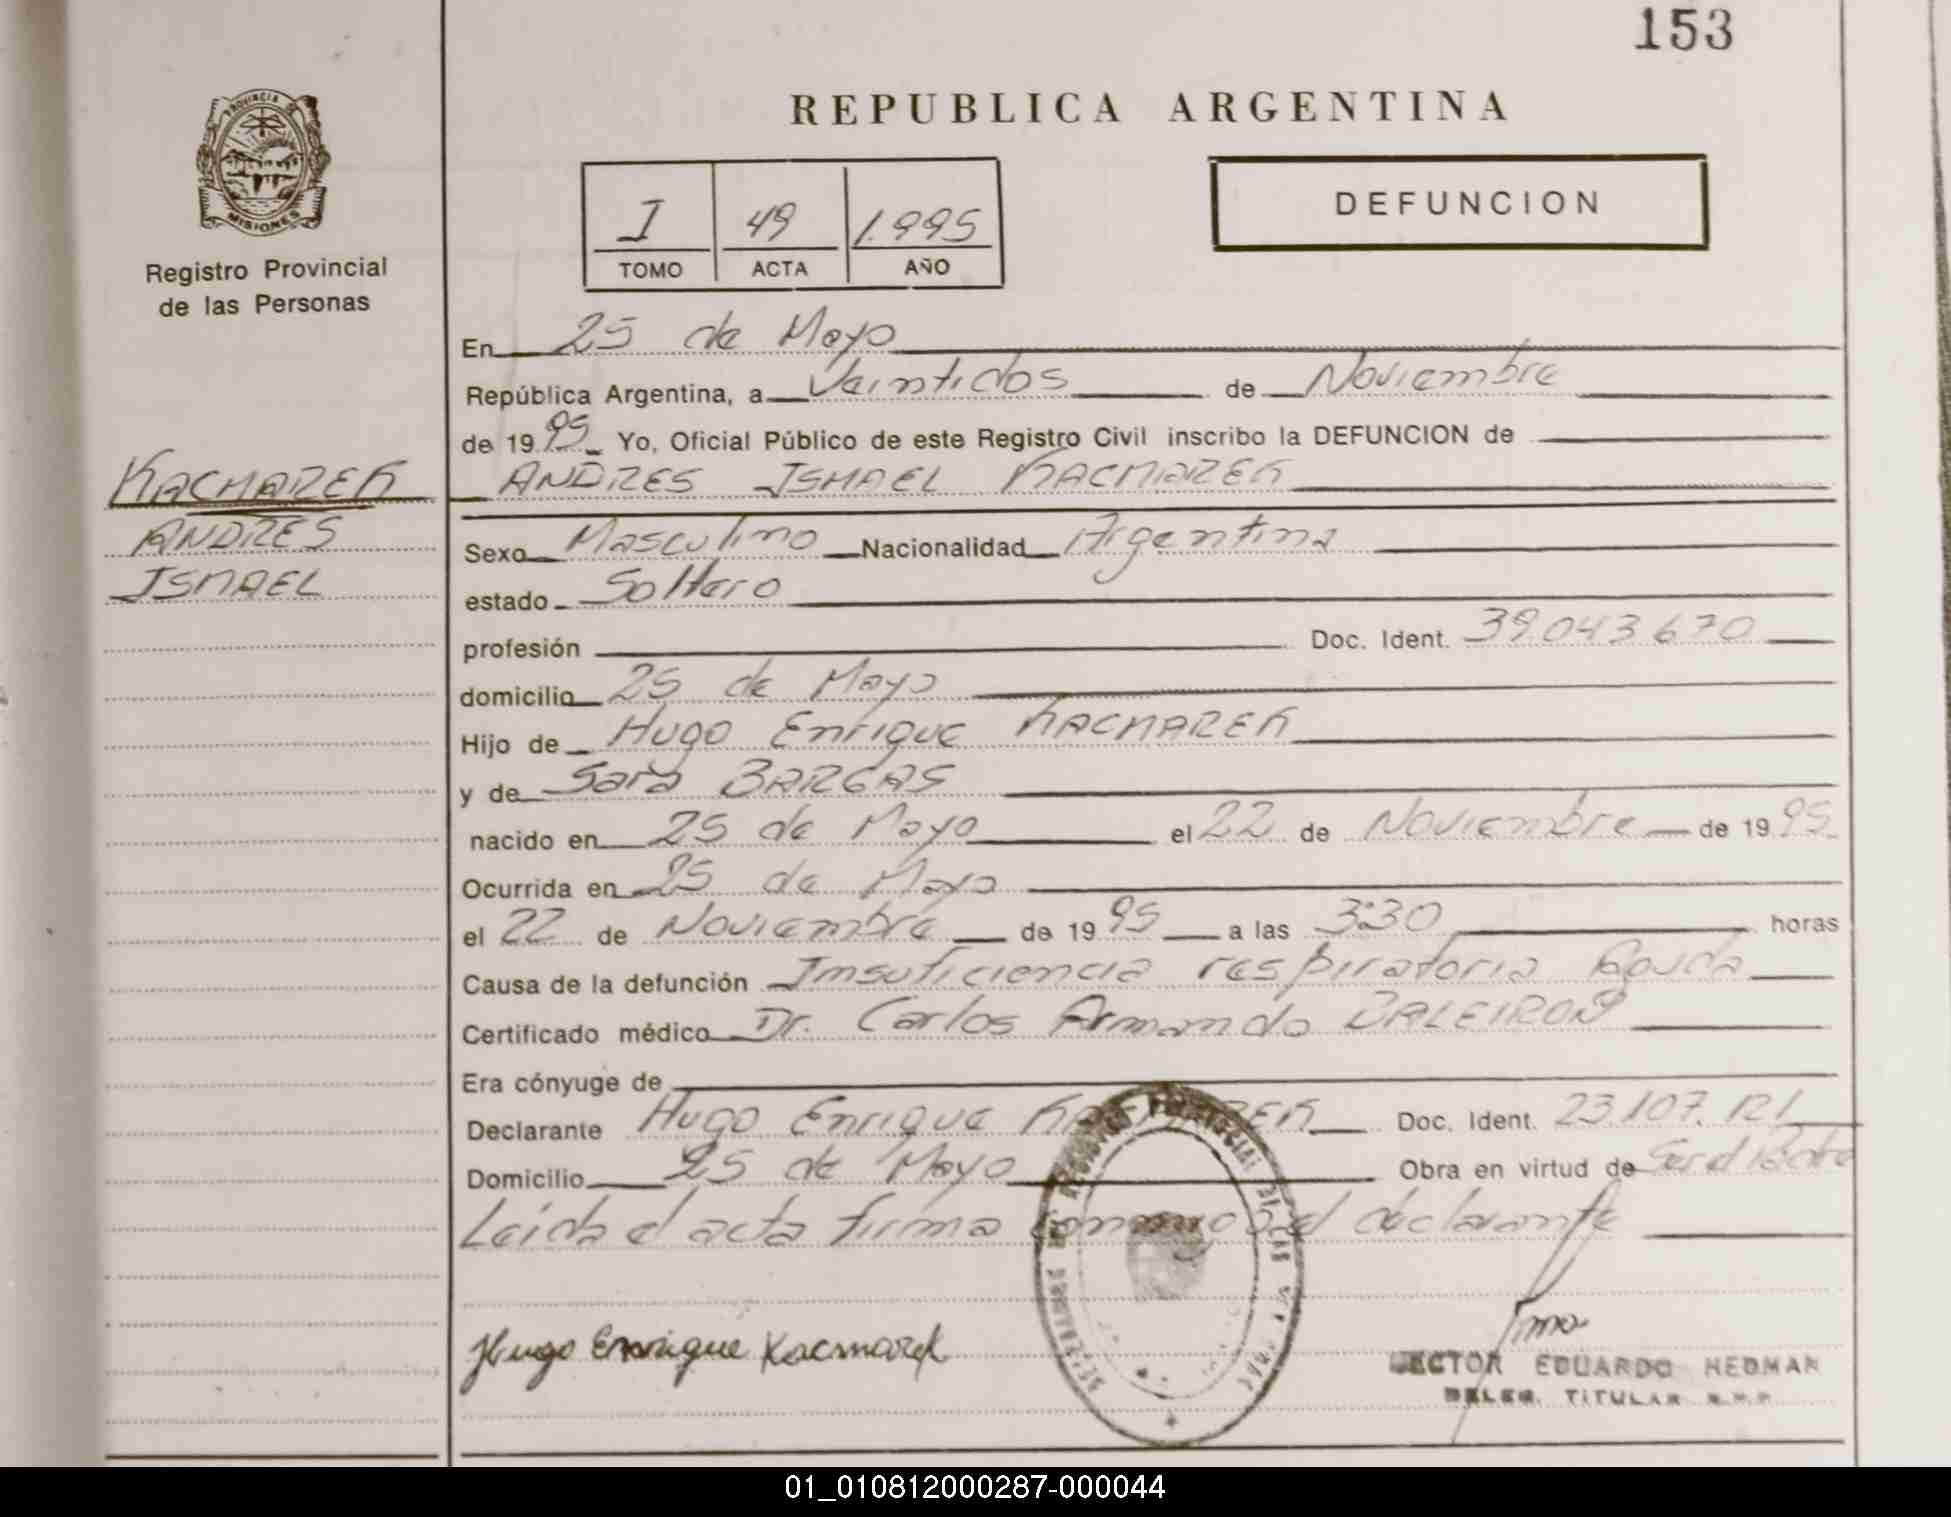 153
REPUBLICA ARGENTINA
PROVINCIA DE
MISIONES
Registro Provincial
de las Personas
I 49 1.995
TOMO ACTA AÑO
DEFUNCION
En 25 de Mayo
República Argentina, a Veintidos de Noviembre
de 1995 Yo, Oficial Público de este Registro Civil inscribo la DEFUNCION de
ANDRES ISMAEL KACMAREK
KACMAREK
ANDRES
ISMAEL
Sexo Masculino Nacionalidad Argentina
estado Soltero
profesión Doc. Ident. 39.043.670
domicilio 25 de Mayo
Hijo de Hugo Enrique KACMAREK
y de Sara BARGAS
nacido en 25 de Mayo el 22 de Noviembre de 1995
Ocurrida en 25 de Mayo
el 22 de Noviembre de 1995 a las 3:30 horas
Causa de la defunción Imsuficiencia respiratoria Aguda
Certificado médico Dr. Carlos Armando
Era cónyuge de
Declarante Hugo Enrique KACMAREK Doc. Ident. 23.107.121
Domicilio 25 de Mayo Obra en virtud de Ser el Padre
Leida el acta firma conmigo el declarante
Hugo Enrique Kacmarek
HECTOR EDUARDO HEDMAN
DELEG. TITULAR R.P.P.
01_010812000287-000044